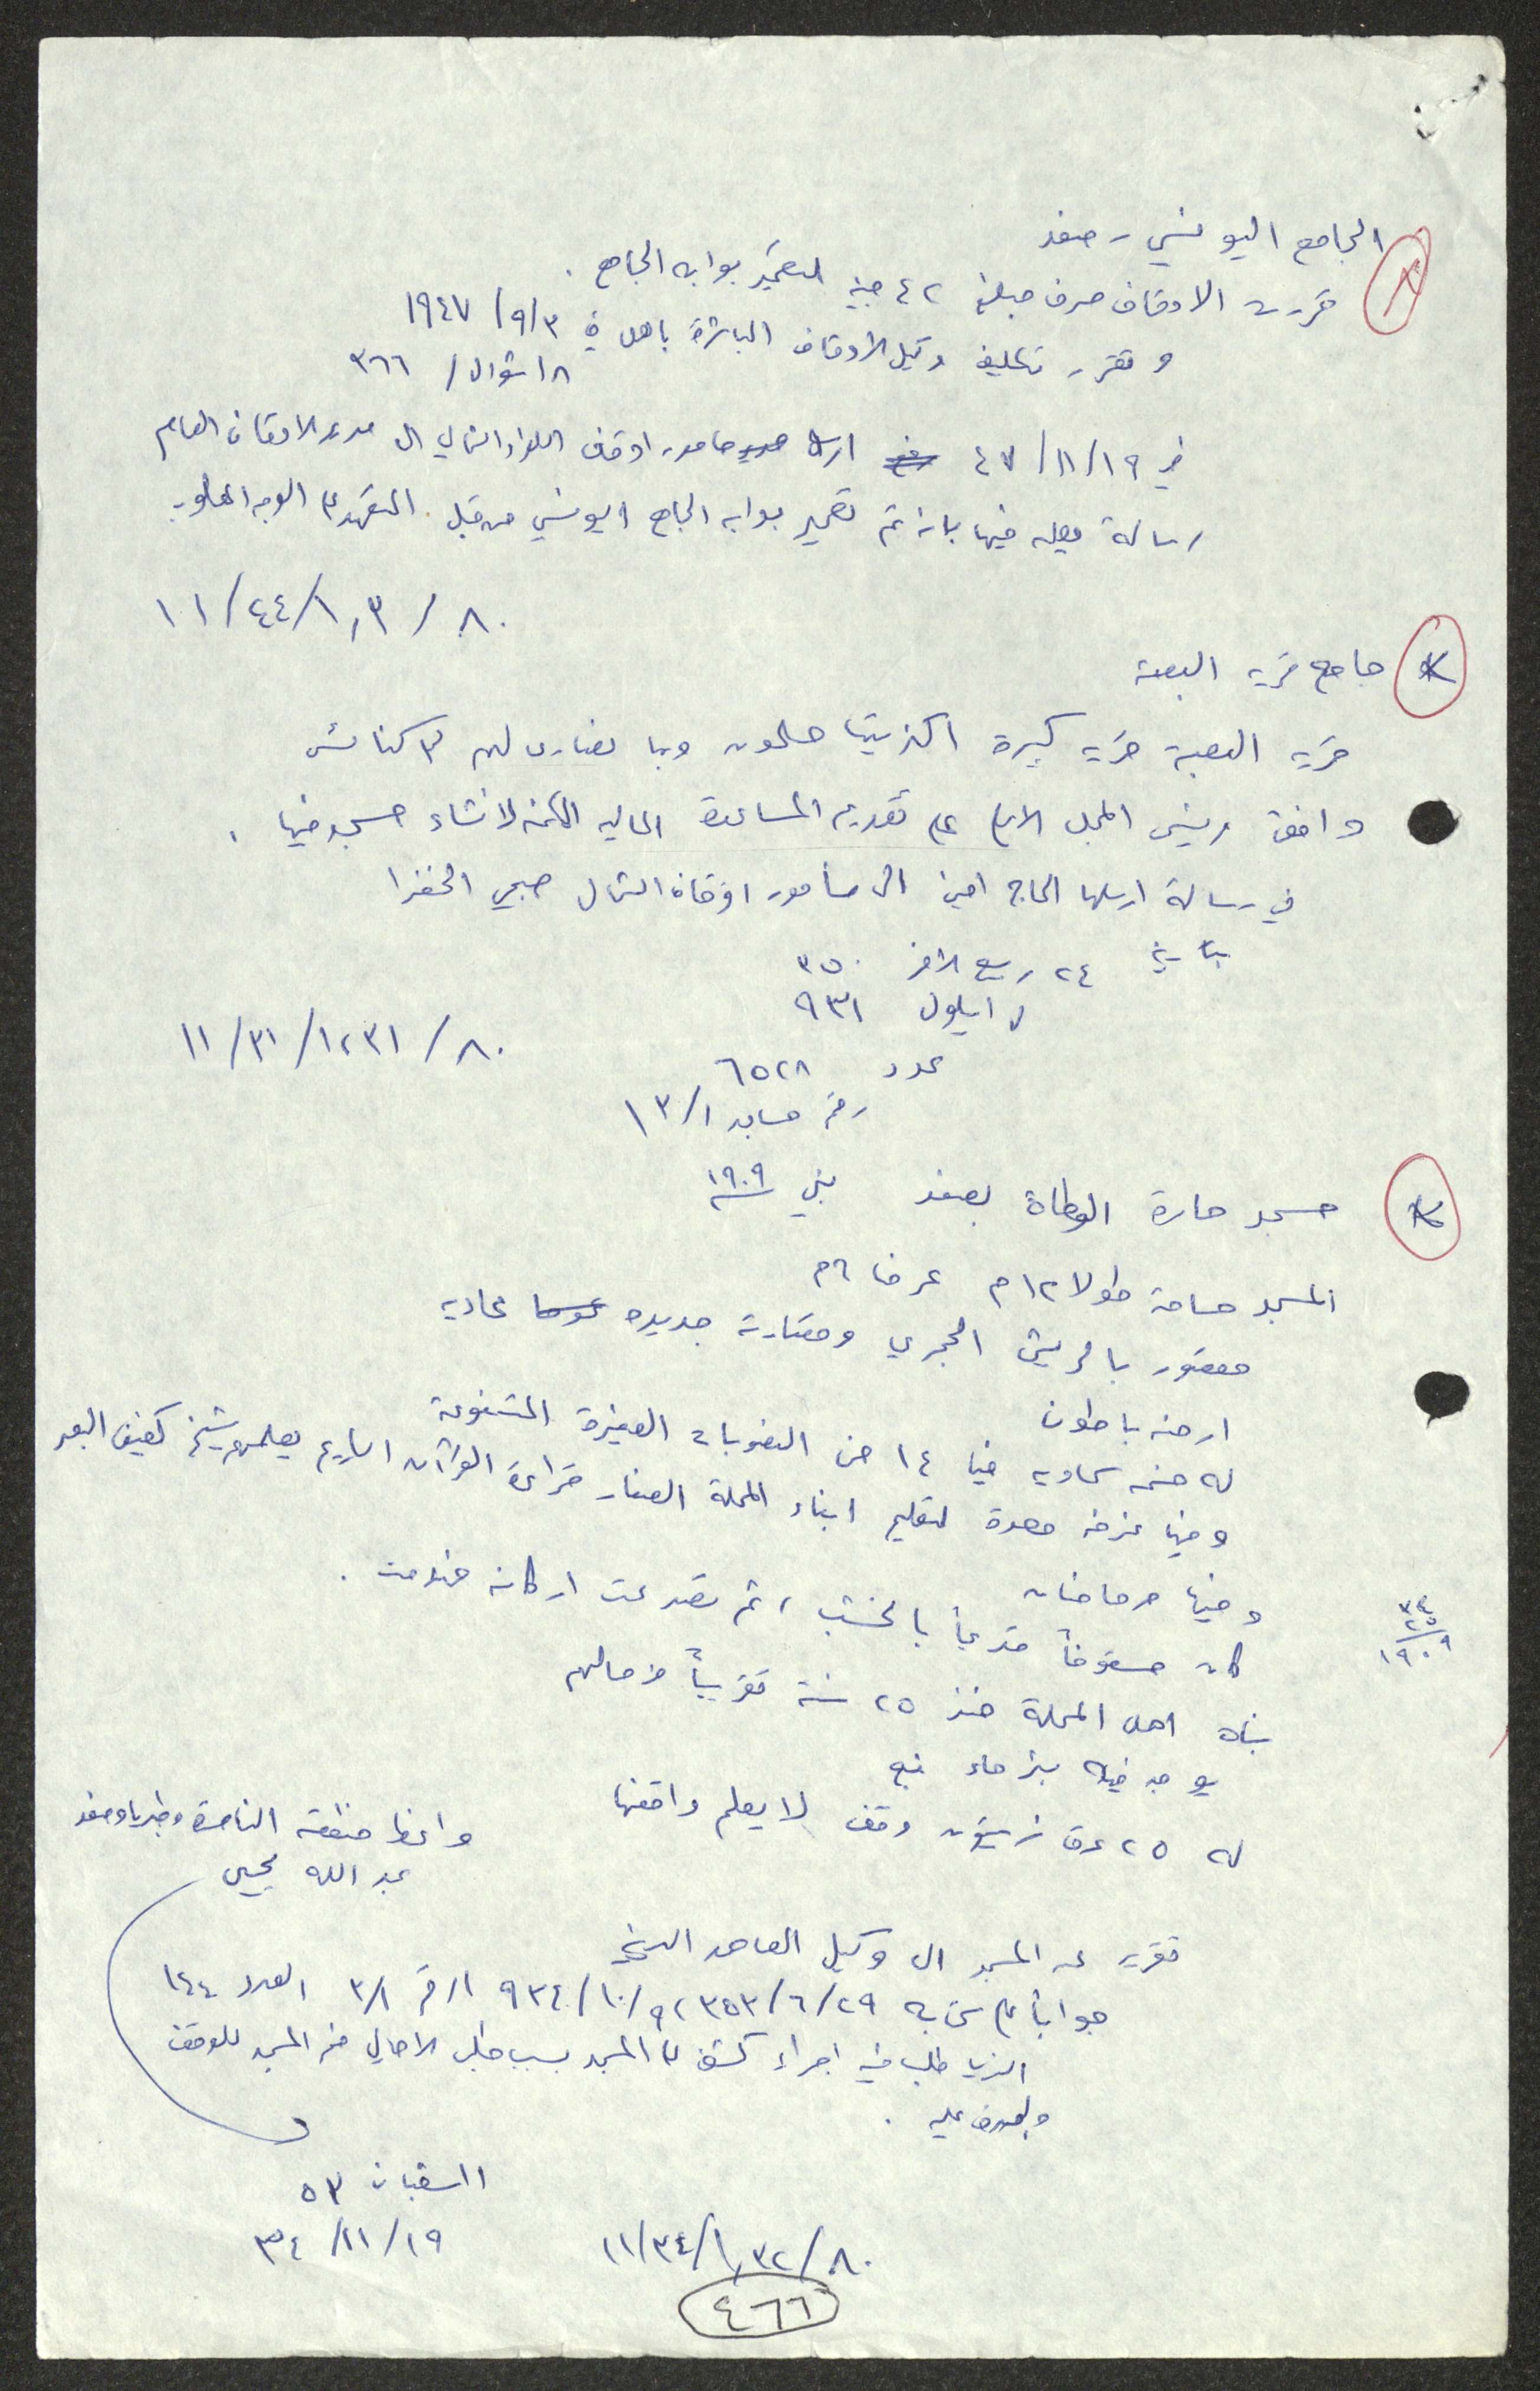 الجامع اليونسي - صفد
قررت الاوقاف صرف مبلغ ٤٢ جنيه لتعمير بوابه الجامع .
وتقرر تكليف وكيل الأوقاف المباشرة بالعمل في ١٩٤٧/٩/٣
١٨ شوال / ٣٦٦
في ٤٧/١١/١٩ ارسل مامور اوقاف اللواء الشمالي الى مدير الاوقاف العام
رسالة يعلمه فيها بانه تم تعمير بوابه الجامع اليونسي من قبل المتعهد على الوجه المطلوب
١١/٤٤/١,٣/٨٠
* جامع قريه البعنه
قريه البعنة قريه كبيرة اكثريتها مسلمون وبها نصارى لهم ٣ كنائس
وافق رئيس المجلس الاسلامي على تقديم المساعدة الماليه الممكنه لانشاء مسجد فيها .
في رسالة ارسلها الحاج امين الى مأمور اوقاف الشمال صبحي الخضرا
بتاريخ ٢٤ ربيع الاخر ٣٥٠
٧ ايلول ٩٣١
عدد ٦٥٢٨
رقم مساجد ١٣/١
١١/٣١/١،٣١/٨٠
* مسجد حارة الوطاة بصفد بني سنة ١٩٠٩
المسجد مساحة طولا ١٢ م عرضا ٦ م
معقور بالربش الحجري وقصارته جديده عاديه
ارضه باطون
له فسحه سماويه فيها ١٤ من النصوبات الصغيرة المتنوعة
وفيها غرفه معدة لتعليم ابناء المحلة الصغار قراءة القرآن الكريم يعلمهم شيخ كفيف البصر
وفيها مرحاضان
كان مسقوفاً قديماً بالخشب ، ثم تصدعت اركانه فهدمت .
٣٤
٢٥
١٩٠٩
بناه اهل المحلة منذ ٢٥ سنة تقريباً من مالهم
يوجد فيه بئر ماء نبع
له ٢٥ عرق زيتون وقف لا يعلم واقفها
واعظ منطقة الناصرة وطبريا وصفد
عبد الله يحيى
تقرير عن المسجد الى وكيل المعاهد الدينية
جواباً على كتابه ٣٥٣/٦/٢٩ ، ٩٣٤/١٠/٩ الرقم ٣/١ العدد ١٤٤
الذي طلب فيه اجراء كشف على المسجد بسبب طلب الاهالي ضم المسجد للوقف
والصرف عليه .
١١ شعبان ٥٣
٣٤/١١/١٩
١١/٣٤/١,٣٢/٨٠
٤٦٦